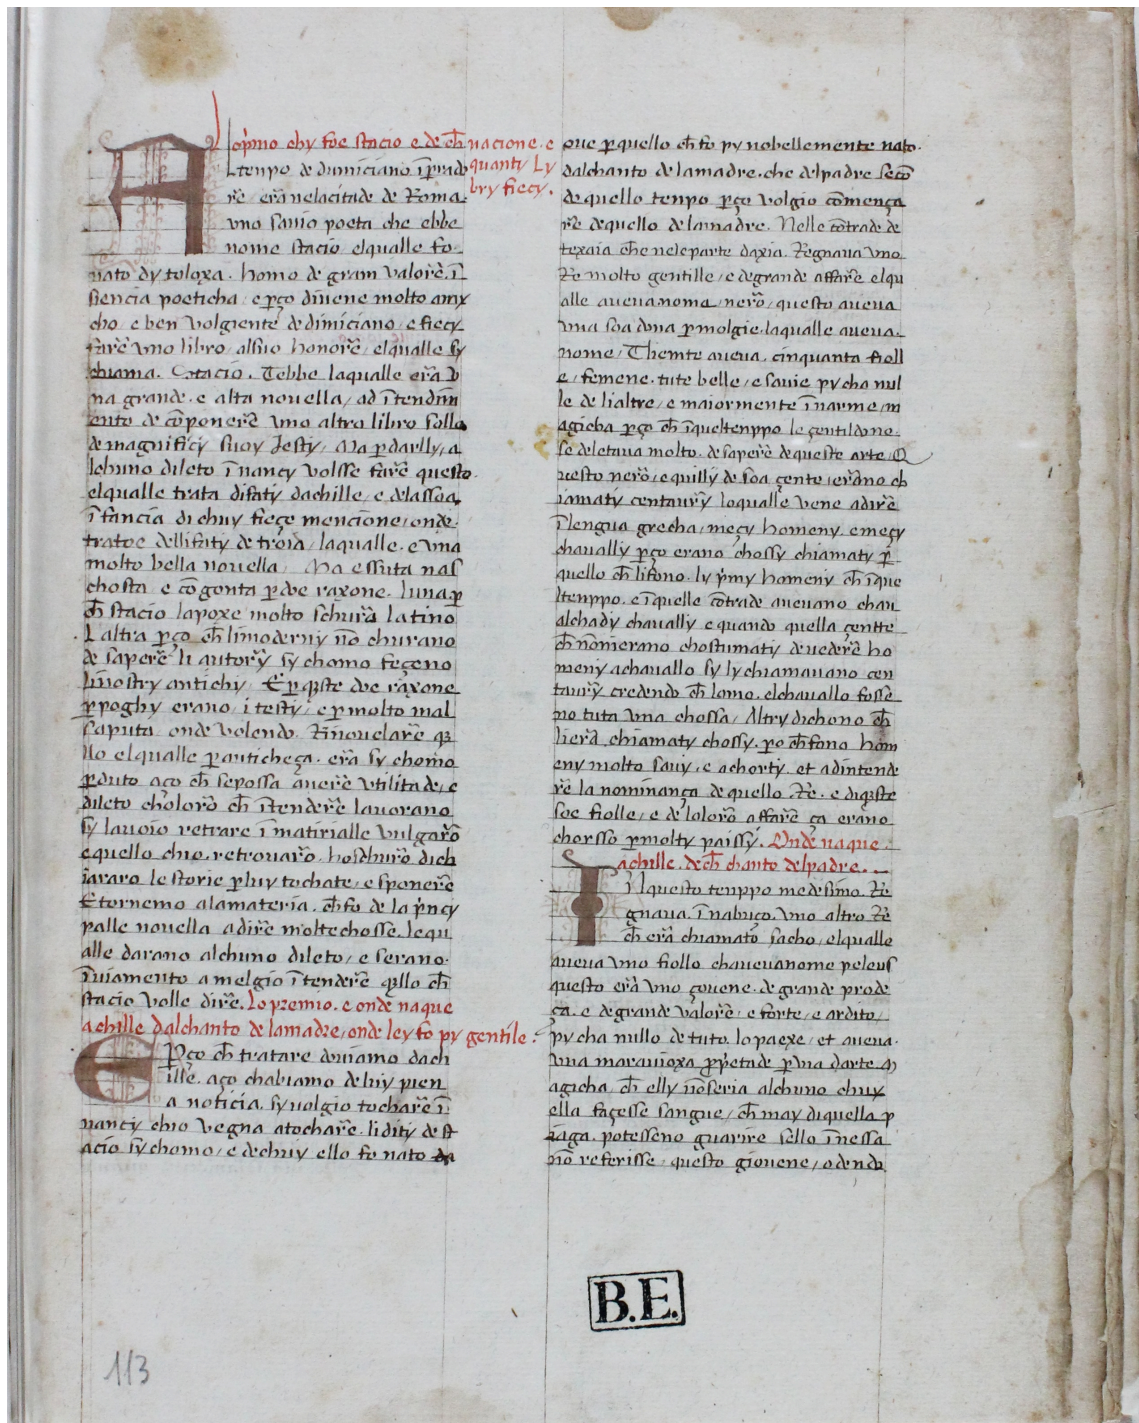 Lo p̄mo chy foe stacio e de ch̄ nacione. e
quanty Ly
bry fiecy.
Al tenpo de dimiciano īp̄rado
rē, erā nelacitade de Roma.
vno sauio poeta che ebbe
nome stacio elqualle fo.
nato dy toloxa. homo de gram valorē. ī
siencia poeticha, e p̱ço diuene molto amy
cho, e ben volgiente de dimiciano, e fiecy
farē vno libro, alsuo honorē, elqualle sy
chiama. Stacio. Tebbe laqualle erā v
na grande. e alta nouella, ad ītendim
ento de cōponerē vno altro libro sollo
de magnificy suoy Jesty, Ma p̱darlly, a
lchuno dileto īnancy volsse farē questo.
elqualle trata difaty dachille, e delassoa
īfancia di chuy fieçe mencione, onde.
tratoe dellifaty de troia, laqualle. e vna
molto bella nouella, Ma essuta nas
chosta e cōgonta p̱doe raxone. luna p̱
ch̄ stacio lapoxe molto schurā latino
Laltra p̱ço ch̄ limoderny nō churano
de saperē li autorȳ sy chomo feçeno
linostry antichy, E p̱ q̄ste doe raxone
p̱poghy erano, i testy, e p̱molto mal
saputa, onde volendo. Rinouelarē q̄
llo elqualle p̱anticheça. erā sy chomo
p̱duto aço ch̄ sepossa auerē vtilitade, e
dileto cholorō ch̄ ītenderē lauorano
sy lauoio retrare ī matirialle vulgarō
equello chio. retrouarō. hosdhurō dich
iararo le storie p̱luy tochate, e sponerē
E tornemo alamateria. ch̄ fo de la p̄ncy
palle nouella adirē molte chosse. lequ
alle darano alchuno dileto, e serano.
īuiamento amelgio ītenderē q̄llo ch̄
stacio volle dirē. Lo proemio. e onde naque
achille dalchanto de lamadre, onde ley fo py gentile.
E P̱ço ch̄ tratare douiamo dach
ille. aço chabiamo deluy pien
a noticia. sy uolgio tocharē ī
nancy chio vegna atocharē. lidity de st
acio sy chomo, e dechuy ello fo nato da
oue p̱ quello ch̄ fo py nobellemente nato.
dalchanto de lamadre. che delpadre secō
de quello tenpo p̱ço volgio cōmença
rē dequello delamadre. Nelle cōtrade de
texaia ch̄e nele parte daxia. Regnaua vno
Re molto gentille, e degrande affarē elqu
alle aueua noma, nerō, questo aueua
vna soa dona p̱molgie. laqualle aueua.
nome, Themte aueua. cinquanta fioll
e, femene. tute belle, e sauie py cha nul
le de lialtre, e maiormente īnarme, m
agicha p̱ço ch̄ īqueltenppo le çentildone.
se deletaua molto. de saperē dequeste arte. Q
uesto nerō, equilly de soa çente, erāno ch
iamaty centaurȳ loqualle vene adirē
īlengua grecha, meçy homeny, e meçy
chaually p̱ço erano chossy chiamaty p̱
quello ch̄ lifono. ly p̄my homeny ch̄ īque
ltenppo. e īquelle cōtrade aueuano chau
alchady chaually e quando quella çentte
ch̄ nōnierano chostumaty deuederē ho
meny achauallo sy lychiamauano cen
taurȳ credendo ch̄ lomo. elchauallo fosse
no tuta vna chossa, Altry dichono ch̄
lierā. chiamaty chossy. p̱o ch̄fono hom
eny molto sauy, e achorty. et adintende
rē la nominança de quello. Re. e diq̄ste
soe fiolle, e de lolorō affarē ça erano
chorsso p̱molty paissy. Onde naque
achille. dech̄ chanto delpadre.
IN questo tenppo medesimo. Re
gnaua. īnabruço. vno altro Re
ch̄ erā chiamato sacho, elqualle
aueua vno fiollo chaueuanome peleus
questo erā vno çouene. de grande prode
ça. e degrande valorē, e forte, e ardito,
py cha nullo de tuto. lo paexe, et aueua.
vna marauioxa p̱p̱etade p̱ vna darte. m
agicha. ch̄ elly nōseria alchuno chuy
ella façesse sangue, ch̄ may diquella p
iaga. potesseno guarire sello īnessa
nō referisse, questo giouene, odendo
B.E.
113